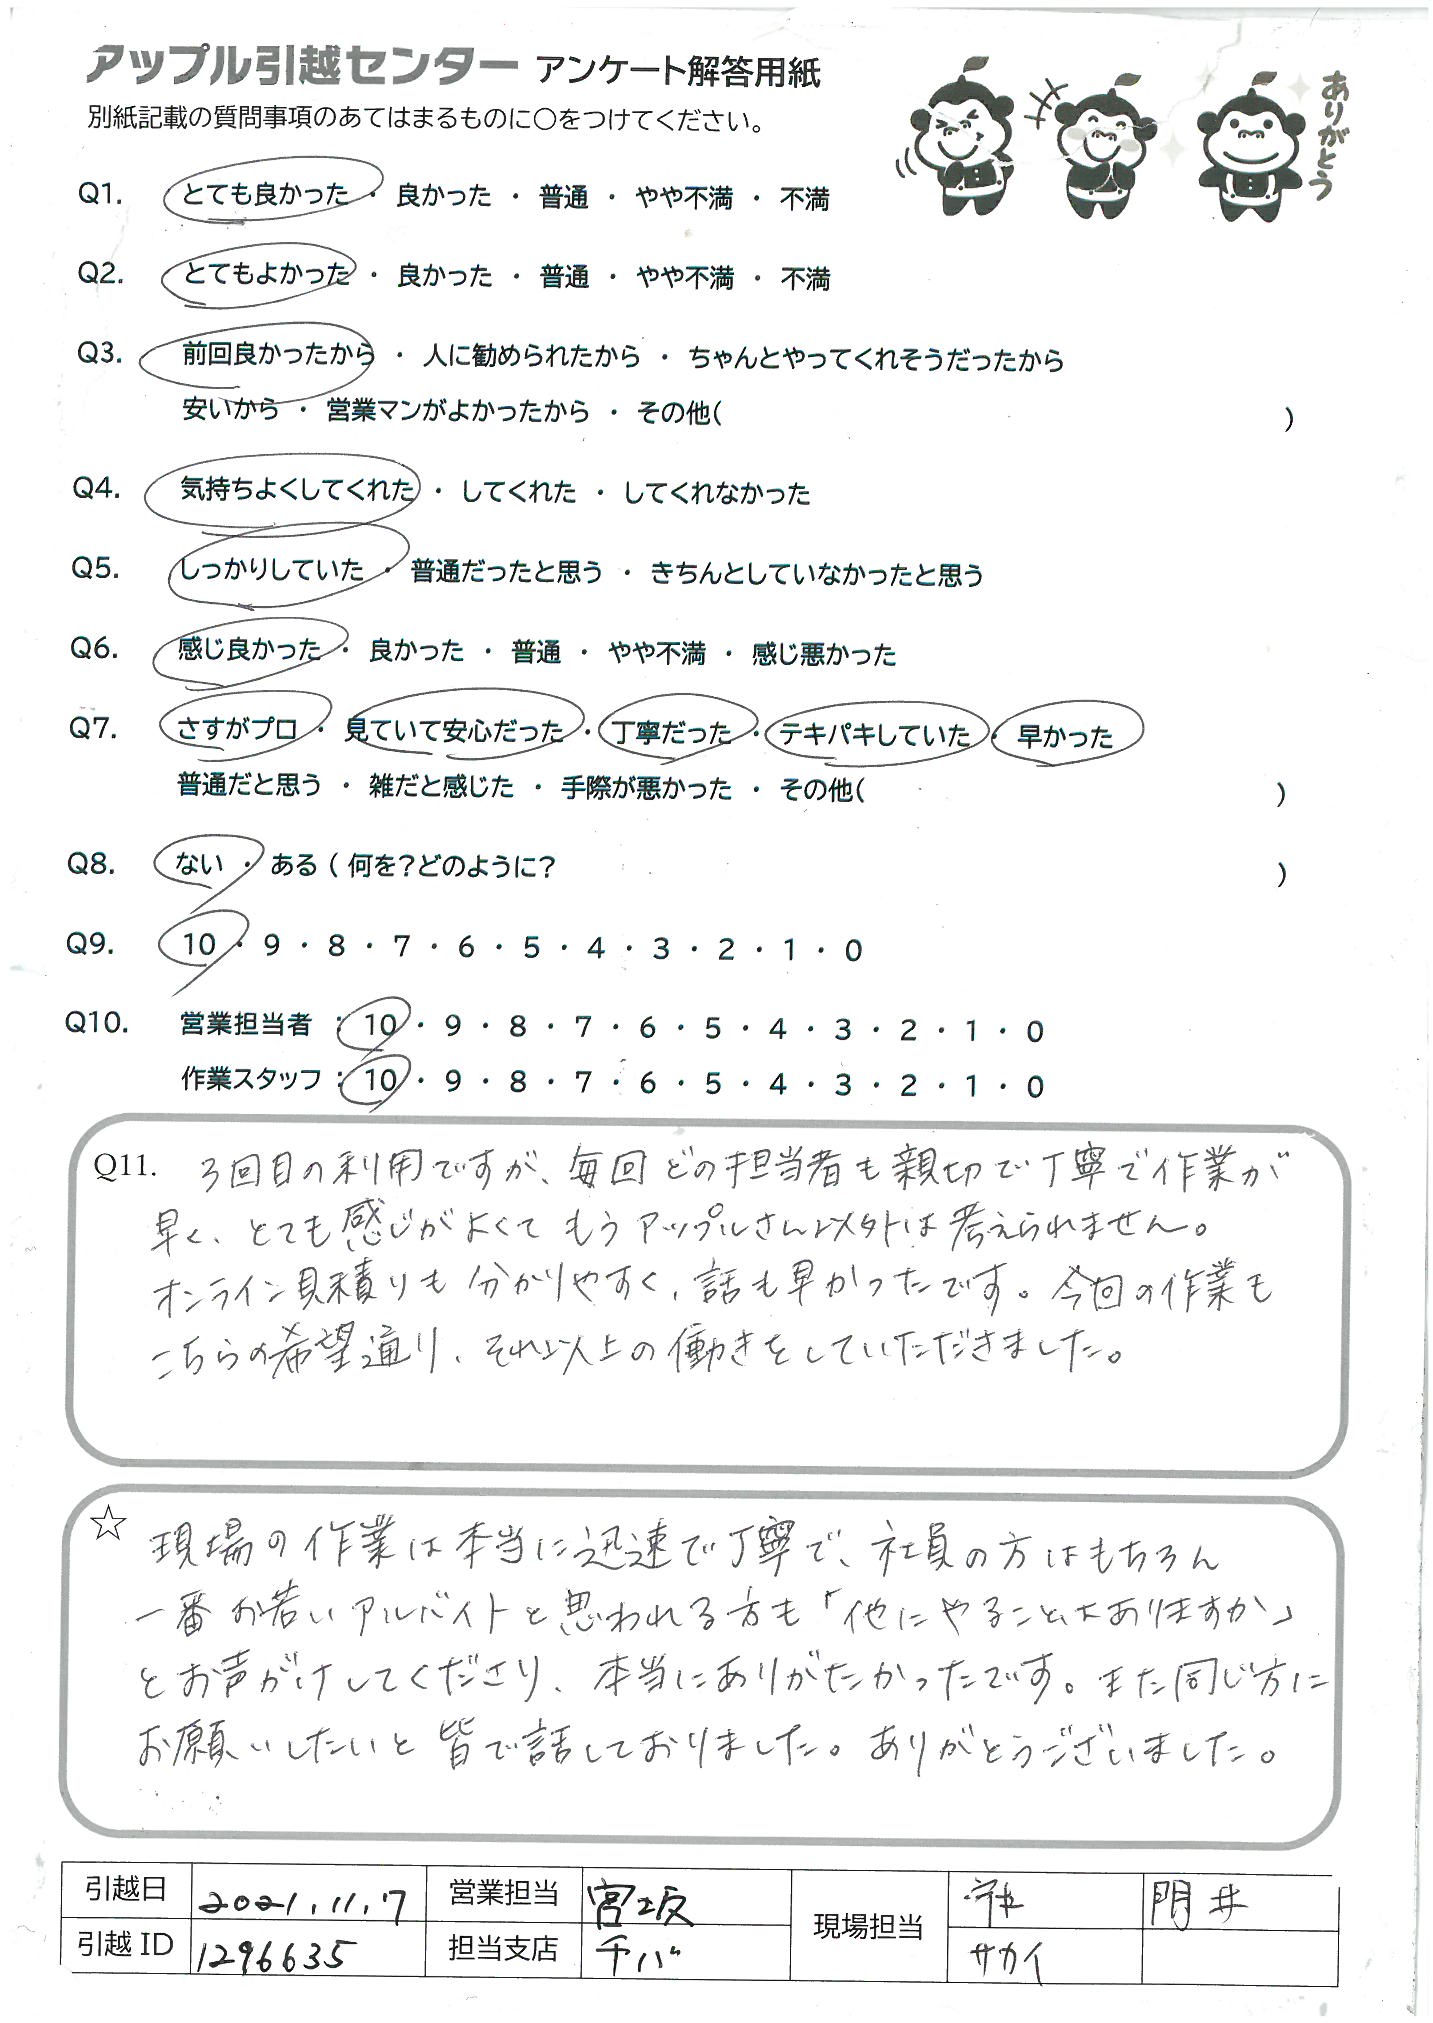 アップル引越センター アンケート解答用紙
別紙記載の質問事項のあてはまるものに〇をつけてください。
ありがとう
Q1. とても良かった ・ 良かった ・ 普通 ・ やや不満 ・ 不満
Q2. とてもよかった ・ 良かった ・ 普通 ・ やや不満 ・ 不満
Q3. 前回良かったから ・ 人に勧められたから ・ ちゃんとやってくれそうだったから
安いから ・ 営業マンがよかったから ・ その他( )
Q4. 気持ちよくしてくれた ・ してくれた ・ してくれなかった
Q5. しっかりしていた ・ 普通だったと思う ・ きちんとしていなかったと思う
Q6. 感じ良かった ・ 良かった ・ 普通 ・ やや不満 ・ 感じ悪かった
Q7. さすがプロ ・ 見ていて安心だった ・ 丁寧だった ・ テキパキしていた ・ 早かった
普通だと思う ・ 雑だと感じた ・ 手際が悪かった ・ その他( )
Q8. ない ・ ある ( 何を?どのように? )
Q9. 10 ・ 9 ・ 8 ・ 7 ・ 6 ・ 5 ・ 4 ・ 3 ・ 2 ・ 1 ・ 0
Q10. 営業担当者 : 10 ・ 9 ・ 8 ・ 7 ・ 6 ・ 5 ・ 4 ・ 3 ・ 2 ・ 1 ・ 0
作業スタッフ : 10 ・ 9 ・ 8 ・ 7 ・ 6 ・ 5 ・ 4 ・ 3 ・ 2 ・ 1 ・ 0
Q11. 3回目の利用ですが、毎回どの担当者も親切で丁寧で作業が
早く、とても感じがよくてもうアップルさん以外は考えられません。
オンライン見積りも分かりやすく、話も早かったです。今回の作業も
こちらの希望通り、それ以上の働きをしていただきました。
☆ 現場の作業は本当に迅速で丁寧で、社員の方はもちろん
一番お若いアルバイトと思われる方も「他にやることはありますか」
とお声がけしてくださり、本当にありがたかったです。また同じ方に
お願いしたいと皆で話しておりました。ありがとうございました。
引越日 2021.11.7 営業担当 宮坂 現場担当 門井
引越ID 1296635 担当支店 チバ サカイ